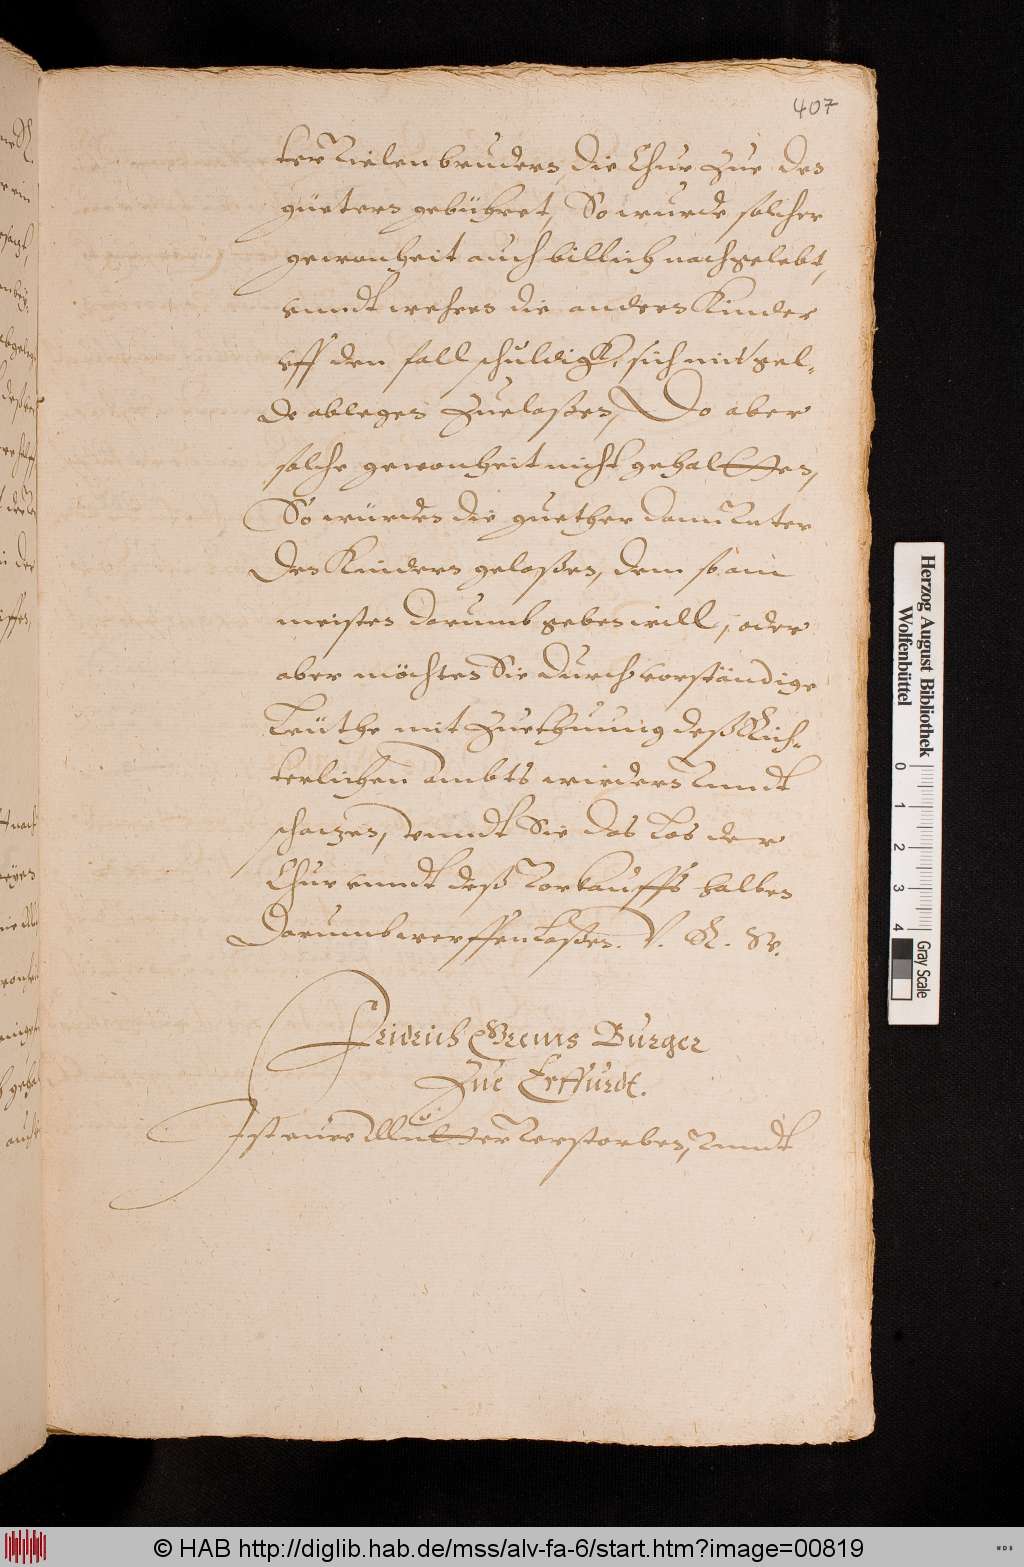 407
ter Vielen bruders, die Chur Zue den
güetern gebühret, So wurde solcher
gewonheit auch billich nachgelebt,
vnndt wehren die andern Kinder
vff den fall schuldigk, sich mit gel-
de ablegen Zuelaßen, Do aber
solche gewonheit nicht gehaltten,
So würden die guether dann Vnter
den Kindern gelaßen, dem so am
meisten darumb geben will, oder
aber möchten Sie durch vorständige
Leüthe mit Zuethuung deß Rich-
terlichen Ambts wirdern Vnndt
schatzen, vnndt Sie das Los der
Chur vnndt deß Vorkauffs halben
darumb werffen laßen. V. R. W.
Fridrich Brems Burger
Zue Erffurdt.
Ist eure Mutter Verstorben, Vnndt
Herzog August Bibliothek
Wolfenbüttel
0 1 2 3 4
Gray Scale
© HAB http://diglib.hab.de/mss/alv-fa-6/start.htm?image=00819